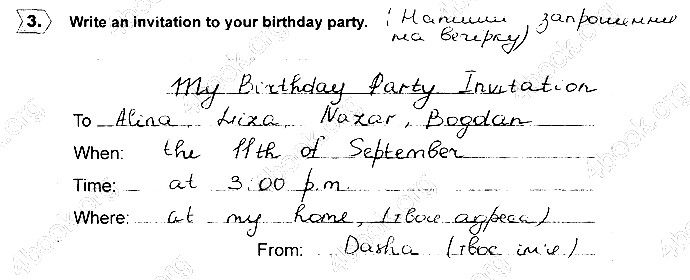 3. Write an invitation to your birthday party. (Напиши запрошення
на вечірку)
My Birthday Party Invitation
To Alina, Liza, Nazar, Bogdan
When: the 11th of September
Time: at 3.00 p.m.
Where: at my home, (твоя адреса)
From: Dasha (твоє ім'я)